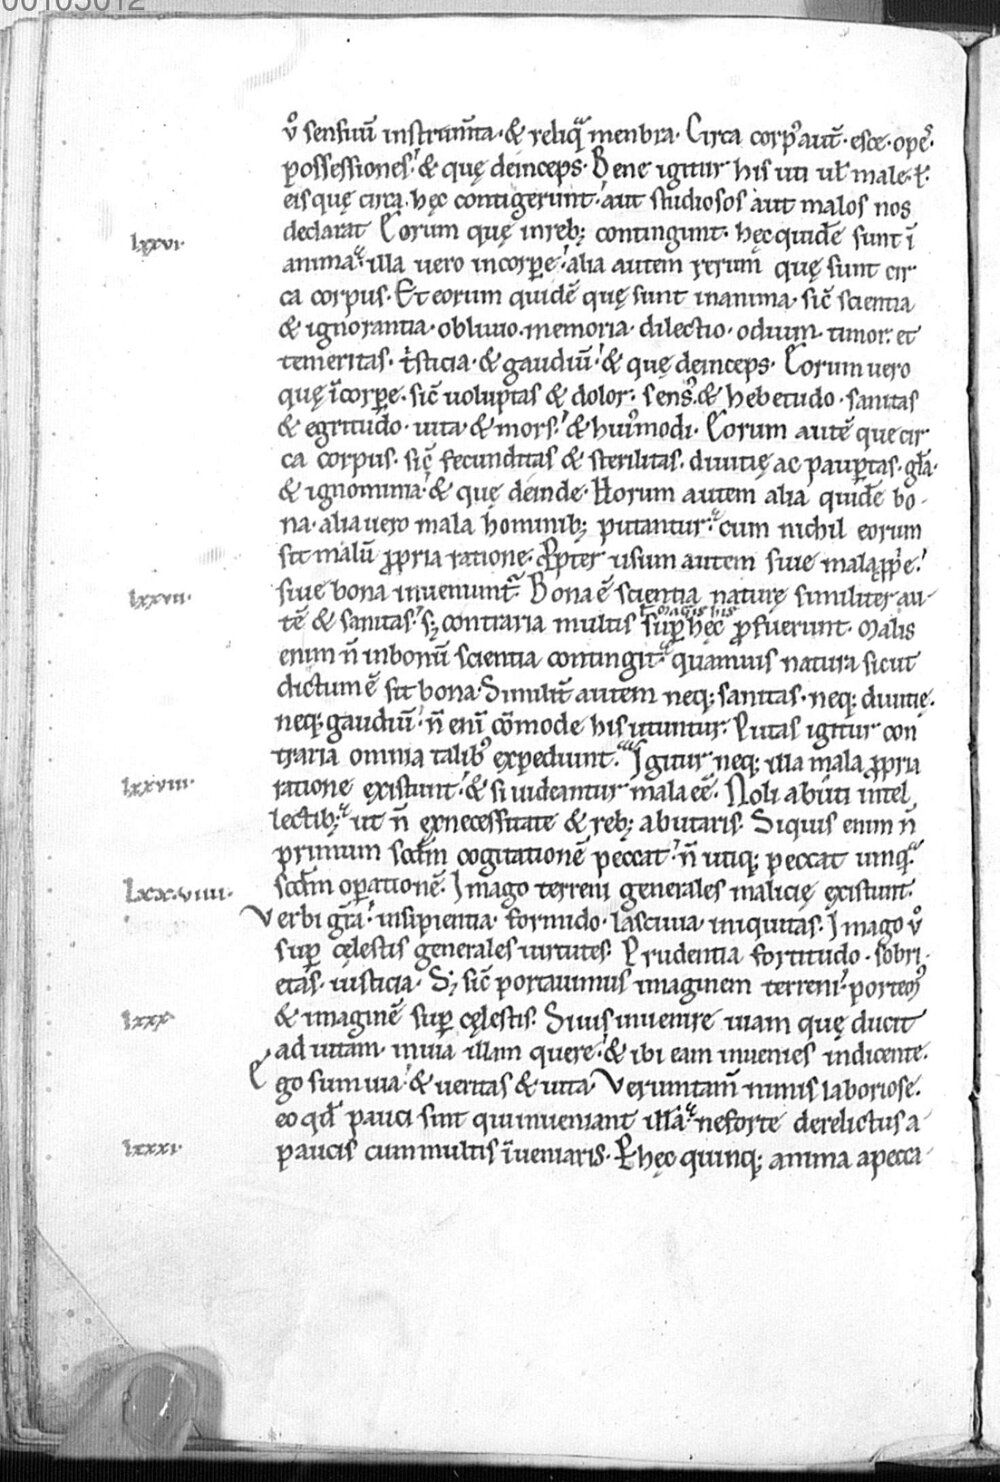 00105012
v̊ sensuū instrum̄ta· & reliq̄ menbra· Circa corp᷒ aut̄· esce· ope᷒·
possessiones· & quę deinceps· Bene igitur his uti ul̄ male· ł·
eis quę circa hęc contigerunt· aut studiosos aut malos nos
declarat Eorum quę in reb; contingunt· hęc quidē sunt ī
lxxvi·
anima· illa uero in corpe· alia autem rerum quę sunt cir
ca corpus· Et eorum quidē quę sunt in anima· sic̄ scientia
& ignorantia· obliuio· memoria· dilectio· odium· timor· et
temeritas· tͥsticia· & gaudiū· & quę deinceps· Eorum uero
quę ī corꝑe· sic̄ uoluptas & dolor· sens᷒· & hebetudo· sanitas
& egritudo· uita· & mors· & hui᷒modi· Eorum autē que cir
ca corpus· sic̄ fecunditas & sterilitas· diuitię ac pauꝑtas· gl̄a·
& ignominia· & quę deinde· Horum autem alia quidē bo-
na· alia uero mala hominib; putantur· cum nichil eorum
sit malū ꝓpria ratione· ꝓpter usum autem siue mala ꝓpͥe·
siue bona inueniunt᷑· Bona ē scientia naturę similiter au-
lxxvii·
tē & sanitas· s; contraria multis suꝑ hęc ꝓfuerunt· Malis
ł magis his
enim n̄ in bonū scientia contingit· quamuis natura sicut
dictum ē sit bona· Similit̄ autem neq; sanitas· neq; diuitię·
neq; gaudiū· n̄ eni̅ cōmode his utuntur· Putas igitur con
traria omnia talib᷒ expediunt· Igitur neq; illa mala ꝓpria
ratione existunt· & si uideantur mala eē· Noli abuti intel
lxxviii·
lectib;· ut n̄ ex necessitate & reb; abutaris· Siquis enim n̄
primum scd̄m cogitationē peccat· n̄ utiq; peccat umq̄
scd̄m operationē· Imago terreni generales malicię existunt·
Lxx·viiii·
Verbi gr̄a· insipientia· formido· lasciuia· iniquitas· Imago v̊
suꝑ cęlestis generales uirtutes· Prudentia fortitudo· sobri-
etas· iusticia· S; sic̄ portauimus imaginem terreni· porteo᷒
& imaginē suꝑ cęlestis· Si uis inuenire uiam quę ducit
lxxx·
ad uitam· in uia illam quere· & ibi eam inuenies indicente·
Ego sum uia· & ueritas & uita· Veruntam̄ nimis laboriose·
eo qd̄ pauci sint qui inueniant illā· ne forte derelictus a
paucis cum multis īueniaris· P hęc quinq; anima a pecca-
lxxxi·